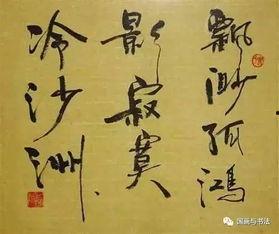 飘渺孤鸿
影寂寞
冷沙洲
国画与书法